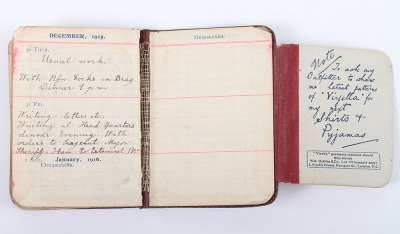 DECEMBER, 1915.
30 THUR.
Usual work.
With Rfn. Socks in Bray
Dinner 7 p.m
31 FRI.
Writing letters etc.
Waiting at Head Quarters
dinner Evening. With
orders to Sergeant Major
Sheriff. Had to Examine
JANUARY, 1916.
Circumcision.
MEMORANDA.
Note
To ask my
Outfitter to show
me latest patterns
of "Viyella" for
my next
Shirts &
Pyjamas